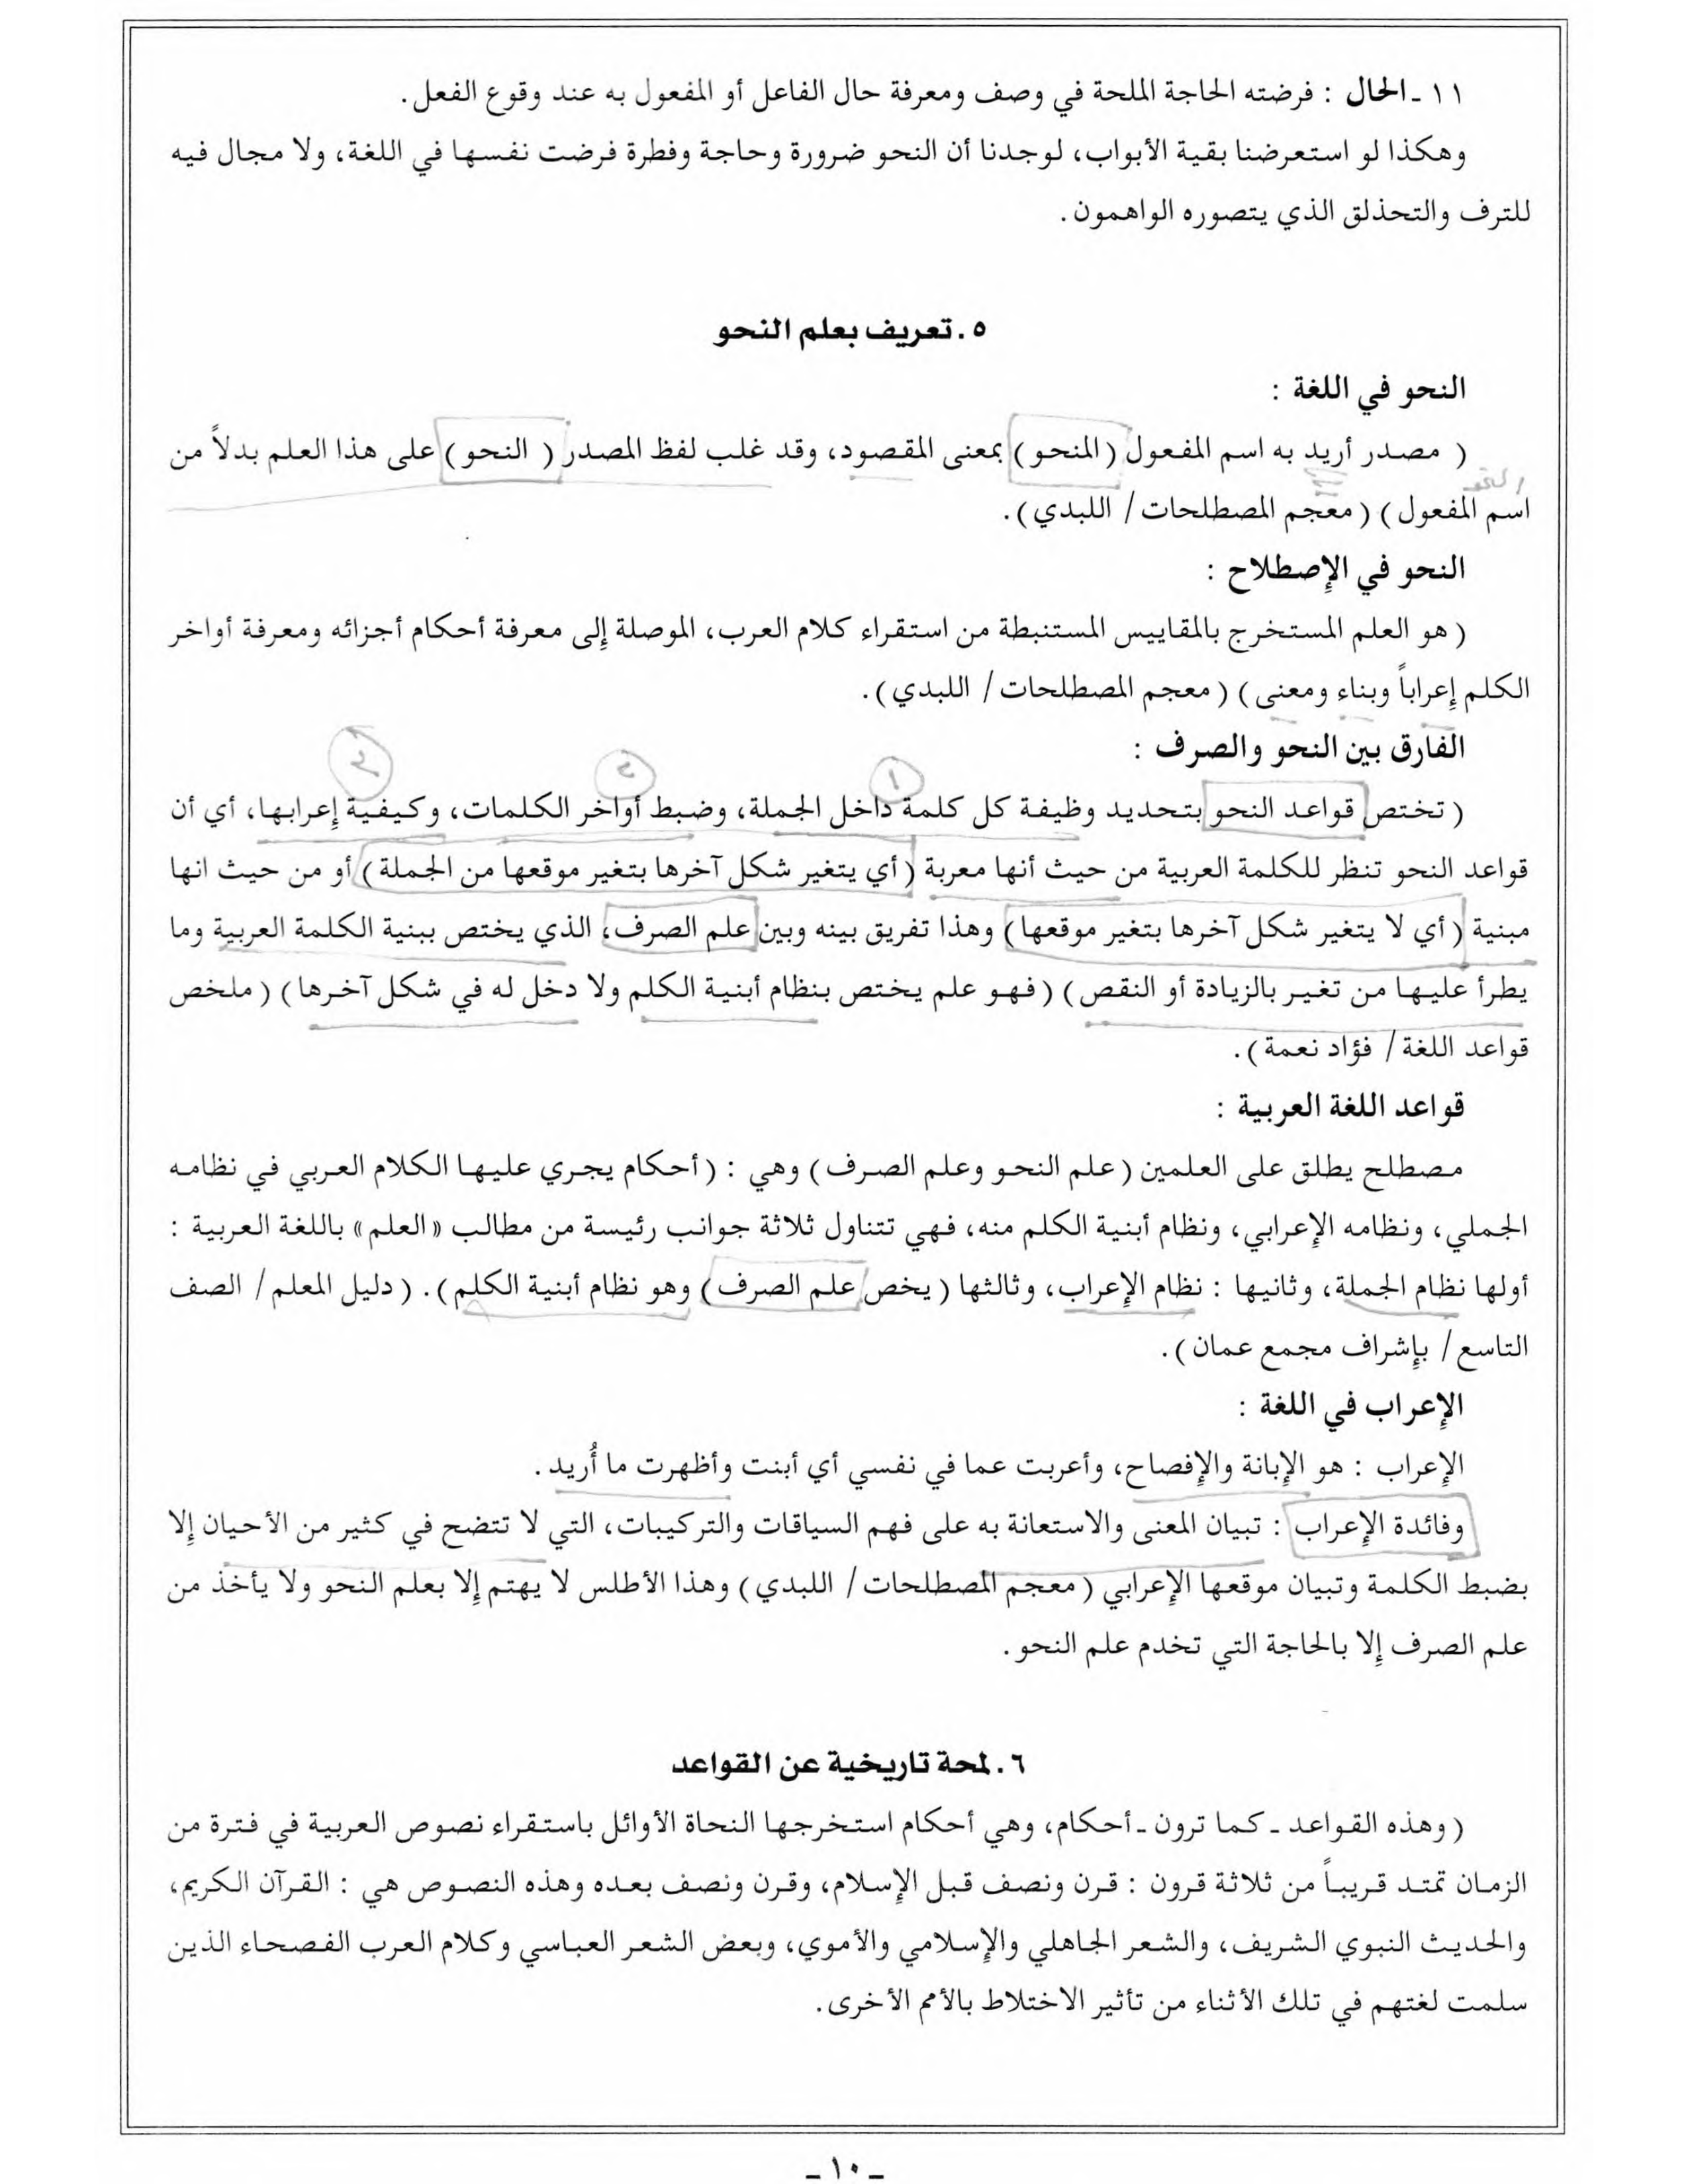 ١١ - الحال : فرضته الحاجة الملحة في وصف ومعرفة حال الفاعل أو المفعول به عند وقوع الفعل.
وهكذا لو استعرضنا بقية الأبواب، لوجدنا أن النحو ضرورة وحاجة وفطرة فرضت نفسها في اللغة، ولا مجال فيه
للترف والتحذلق الذي يتصوره الواهمون.
٥. تعريف بعلم النحو
النحو في اللغة :
( مصدر أريد به اسم المفعول (المنحو) بمعنى المقصود، وقد غلب لفظ المصدر ( النحو ) على هذا العلم بدلاً من
اسم المفعول ) ( معجم المصطلحات / اللبدي ).
النحو في الإصطلاح :
( هو العلم المستخرج بالمقاييس المستنبطة من استقراء كلام العرب، الموصلة إلى معرفة أحكام أجزائه ومعرفة أواخر
الكلم إعراباً وبناء ومعنى ) ( معجم المصطلحات / اللبدي ).
١ ٢ ٣
الفارق بين النحو والصرف :
( تختص قواعد النحو بتحديد وظيفة كل كلمة داخل الجملة، وضبط أواخر الكلمات، وكيفية إعرابها، أي أن
قواعد النحو تنظر للكلمة العربية من حيث أنها معربة ( أي يتغير شكل آخرها بتغير موقعها من الجملة ) أو من حيث انها
مبنية ( أي لا يتغير شكل آخرها بتغير موقعها ) وهذا تفريق بينه وبين علم الصرف، الذي يختص ببنية الكلمة العربية وما
يطرأ عليها من تغير بالزيادة أو النقص ) ( فهو علم يختص بنظام أبنية الكلم ولا دخل له في شكل آخرها ) ( ملخص
قواعد اللغة / فؤاد نعمة ).
قواعد اللغة العربية :
مصطلح يطلق على العلمين ( علم النحو وعلم الصرف ) وهي : ( أحكام يجري عليها الكلام العربي في نظامه
الجملي، ونظامه الإعرابي، ونظام أبنية الكلم منه، فهي تتناول ثلاثة جوانب رئيسة من مطالب «العلم» باللغة العربية :
أولها نظام الجملة، وثانيها : نظام الإعراب، وثالثها ( يخص علم الصرف ) وهو نظام أبنية الكلم ). ( دليل المعلم / الصف
التاسع / بإشراف مجمع عمان ).
الإعراب في اللغة :
الإعراب : هو الإبانة والإفصاح، وأعربت عما في نفسي أي أبنت وأظهرت ما أُريد.
وفائدة الإعراب : تبيان المعنى والاستعانة به على فهم السياقات والتركيبات، التي لا تتضح في كثير من الأحيان إلا
بضبط الكلمة وتبيان موقعها الإعرابي ( معجم المصطلحات / اللبدي ) وهذا الأطلس لا يهتم إلا بعلم النحو ولا يأخذ من
علم الصرف إلا بالحاجة التي تخدم علم النحو.
٦. لمحة تاريخية عن القواعد
( وهذه القواعد - كما ترون - أحكام، وهي أحكام استخرجها النحاة الأوائل باستقراء نصوص العربية في فترة من
الزمان تمتد قريباً من ثلاثة قرون : قرن ونصف قبل الإسلام، وقرن ونصف بعده وهذه النصوص هي : القرآن الكريم،
والحديث النبوي الشريف، والشعر الجاهلي والإسلامي والأموي، وبعض الشعر العباسي وكلام العرب الفصحاء الذين
سلمت لغتهم في تلك الأثناء من تأثير الاختلاط بالأمم الأخرى.
- ١٠ -